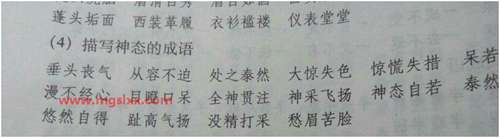 蓬头垢面 西装革履 衣衫褴褛 仪表堂堂
(4) 描写神态的成语
垂头丧气 从容不迫 处之泰然 大惊失色 惊慌失措 呆若
漫不经心 目瞪口呆 全神贯注 神采飞扬 神态自若 泰然
www.mgslxx.com
悠然自得 趾高气扬 没精打采 愁眉苦脸